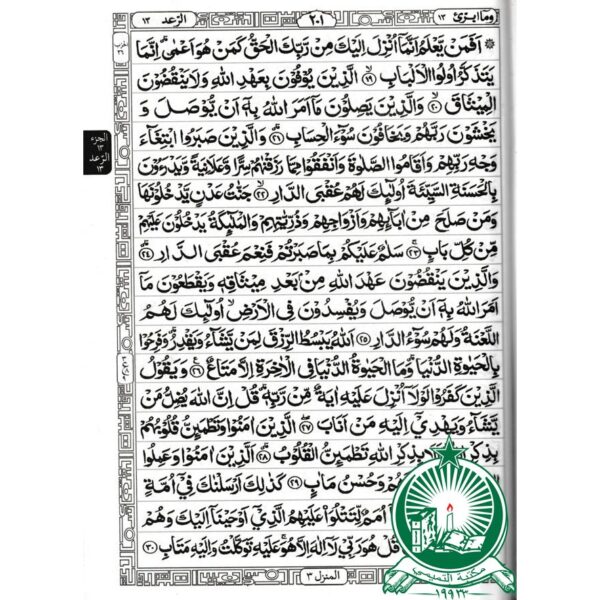 وما ابرئ ١٣
٢٠١
الرّعد ١٣
اَفَمَنْ يَّعْلَمُ اَنَّمَاۤ اُنْزِلَ اِلَيْكَ مِنْ رَّبِّكَ الْحَقُّ كَمَنْ هُوَ اَعْمٰىؕ اِنَّمَا
يَتَذَكَّرُ اُولُوا الْاَلْبَابِۙ ١٩ الَّذِيْنَ يُوْفُوْنَ بِعَهْدِ اللّٰهِ وَلَا يَنْقُضُوْنَ
الْمِيْثَاقَۙ ٢٠ وَالَّذِيْنَ يَصِلُوْنَ مَاۤ اَمَرَ اللّٰهُ بِهٖۤ اَنْ يُّوْصَلَ وَ
يَخْشَوْنَ رَبَّهُمْ وَيَخَافُوْنَ سُوْٓءَ الْحِسَابِؕ ٢١ وَالَّذِيْنَ صَبَرُوا ابْتِغَآءَ
وَجْهِ رَبِّهِمْ وَاَقَامُوا الصَّلٰوةَ وَاَنْفَقُوْا مِمَّا رَزَقْنٰهُمْ سِرًّا وَّعَلَانِيَةً وَّيَدْرَءُوْنَ
بِالْحَسَنَةِ السَّيِّئَةَ اُولٰٓئِكَ لَهُمْ عُقْبَى الدَّارِۙ ٢٢ جَنّٰتُ عَدْنٍ يَّدْخُلُوْنَهَا
وَمَنْ صَلَحَ مِنْ اٰبَآئِهِمْ وَاَزْوَاجِهِمْ وَذُرِّيّٰتِهِمْ وَالْمَلٰٓئِكَةُ يَدْخُلُوْنَ عَلَيْهِمْ
مِّنْ كُلِّ بَابٍۚ ٢٣ سَلٰمٌ عَلَيْكُمْ بِمَا صَبَرْتُمْ فَنِعْمَ عُقْبَى الدَّارِؕ ٢٤
وَالَّذِيْنَ يَنْقُضُوْنَ عَهْدَ اللّٰهِ مِنْۢ بَعْدِ مِيْثَاقِهٖ وَيَقْطَعُوْنَ مَاۤ
اَمَرَ اللّٰهُ بِهٖۤ اَنْ يُّوْصَلَ وَيُفْسِدُوْنَ فِى الْاَرْضِۙ اُولٰٓئِكَ لَهُمُ
اللَّعْنَةُ وَلَهُمْ سُوْٓءُ الدَّارِ ٢٥ اَللّٰهُ يَبْسُطُ الرِّزْقَ لِمَنْ يَّشَآءُ وَيَقْدِرُؕ وَفَرِحُوْا
بِالْحَيٰوةِ الدُّنْيَاؕ وَمَا الْحَيٰوةُ الدُّنْيَا فِى الْاٰخِرَةِ اِلَّا مَتَاعٌ ٢٦ وَيَقُوْلُ
الَّذِيْنَ كَفَرُوْا لَوْلَاۤ اُنْزِلَ عَلَيْهِ اٰيَةٌ مِّنْ رَّبِّهٖؕ قُلْ اِنَّ اللّٰهَ يُضِلُّ مَنْ
يَّشَآءُ وَيَهْدِىْۤ اِلَيْهِ مَنْ اَنَابَۖۚ ٢٧ الَّذِيْنَ اٰمَنُوْا وَتَطْمَئِنُّ قُلُوْبُهُمْ
بِذِكْرِ اللّٰهِؕ اَلَا بِذِكْرِ اللّٰهِ تَطْمَئِنُّ الْقُلُوْبُؕ ٢٨ الَّذِيْنَ اٰمَنُوْا وَعَمِلُوا
لَهُمْ وَحُسْنُ مَاٰبٍ ٢٩ كَذٰلِكَ اَرْسَلْنٰكَ فِىْۤ اُمَّةٍ
اُمَمٌ لِّتَتْلُوَا۟ عَلَيْهِمُ الَّذِىْۤ اَوْحَيْنَاۤ اِلَيْكَ وَهُمْ
قُلْ هُوَ رَبِّىْ لَاۤ اِلٰهَ اِلَّا هُوَۚ عَلَيْهِ تَوَكَّلْتُ وَاِلَيْهِ مَتَابِ ٣٠
المنزل ٣
الجزء
١٣
الرّعد
١٣
مكتبة التميمي
١٩٩٣